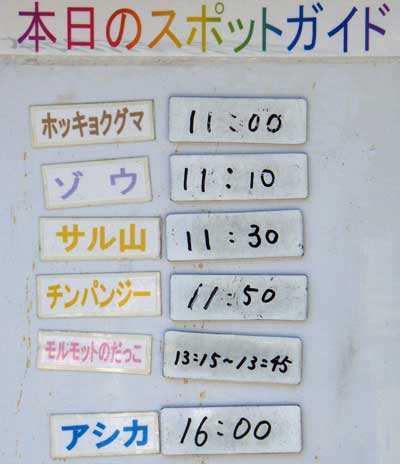 本日のスポットガイド
ホッキョクグマ 11:00
ゾウ 11:10
サル山 11:30
チンパンジー 11:50
モルモットのだっこ 13:15~13:45
アシカ 16:00